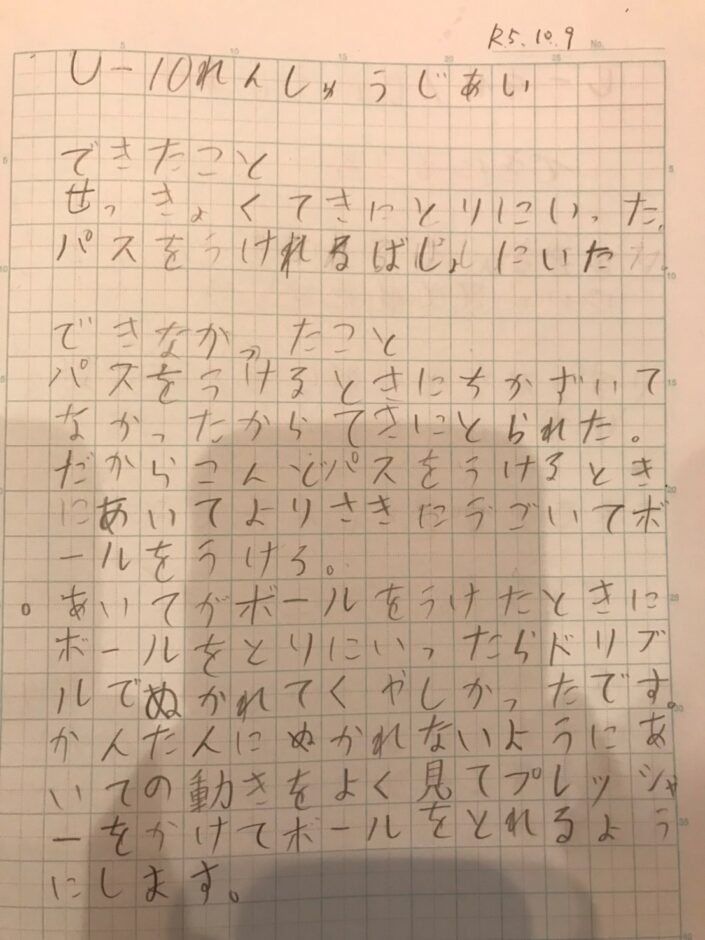 R5.10.9
No.
U-10れんしゅうじあい
できたこと
せっきょくてきにとりにいった。
パスをうけれるばじょにいた
できなかったこと
パスをうけるときにちかずいて
なかったからてきにとられた。
だからこんどパスをうけるとき
にあいてよりさきにうごいてボ
ールをうけろ。
。あいてがボールをうけたときに
ボールをとりにいったらドリブ
ルでぬかれてくやしかったです。
かんたんにぬかれないようにあ
いての動きをよく見てプレッシャ
ーをかけてボールをとれるよう
にします。